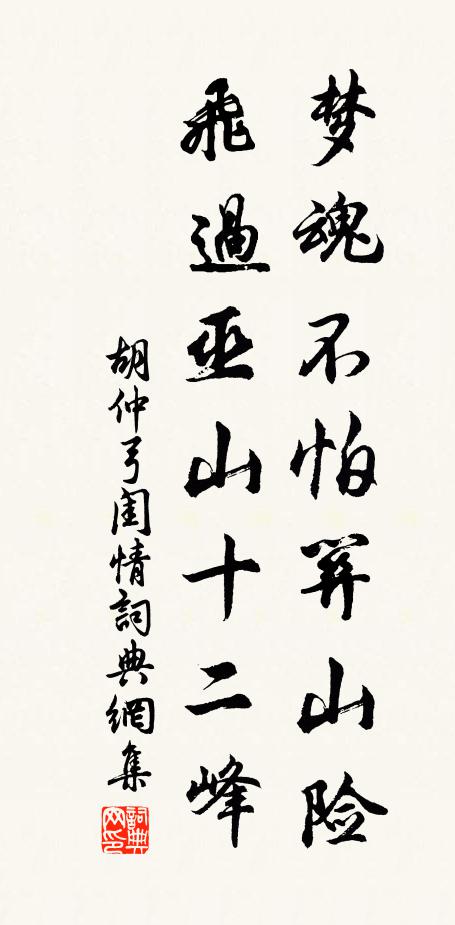 梦魂不怕關山险
飛過巫山十二峰
胡仲弓閨情詞典網集
詞典网印